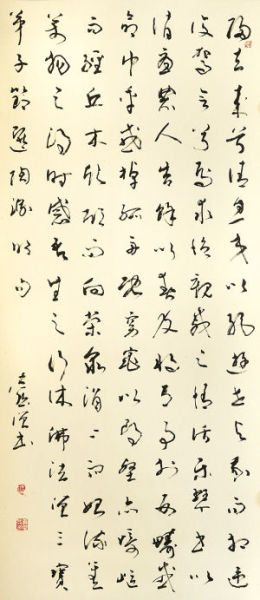 歸去來兮請息交以絕遊世與我而相違
復駕言兮焉求悅親戚之情話樂琴書以
消憂農人告余以春及將有事於西疇或
命巾車或棹孤舟既窈窕以尋壑亦崎嶇
而經丘木欣欣而向榮泉涓涓而始流善
萬物之得時感吾生之行休佛法僧三寶
弟子節選陶淵明句